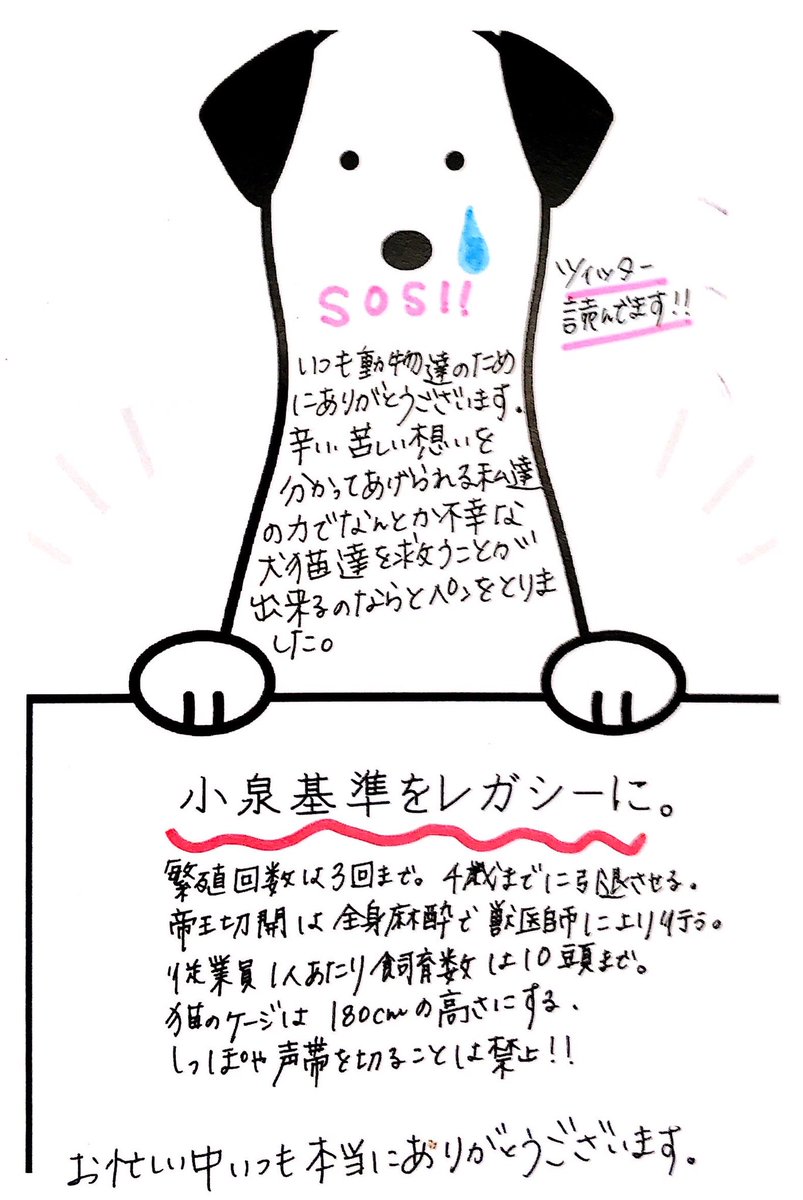 SOS!!
ツイッター
読んでます!!
いつも動物達のため
にありがとうございます.
辛い、苦しい想いを
分かってあげられる私達
の力でなんとか不幸な
犬猫達を救うことが
出来るのならとペンをとりま
した。
小泉基準をレガシーに。
繁殖回数は3回まで。4歳までに引退させる.
帝王切開は全身麻酔で獣医師により行う。
従業員1人あたり飼育数は10頭まで。
猫のケージは180cmの高さにする.
しっぽや声帯を切ることは禁止!!
お忙しい中いつも本当にありがとうございます.